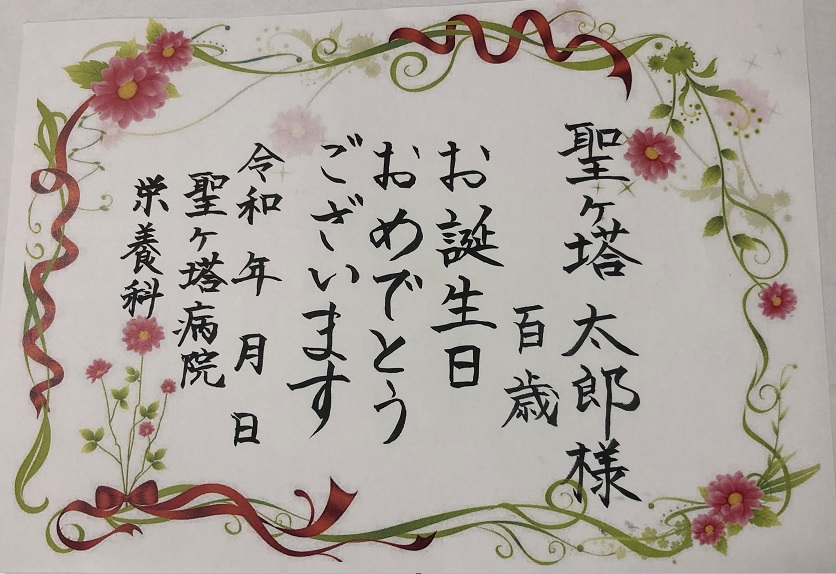 聖ヶ塔 太郎様
百歳
お誕生日
おめでとう
ございます
令和 年 月 日
聖ヶ塔病院
栄養科